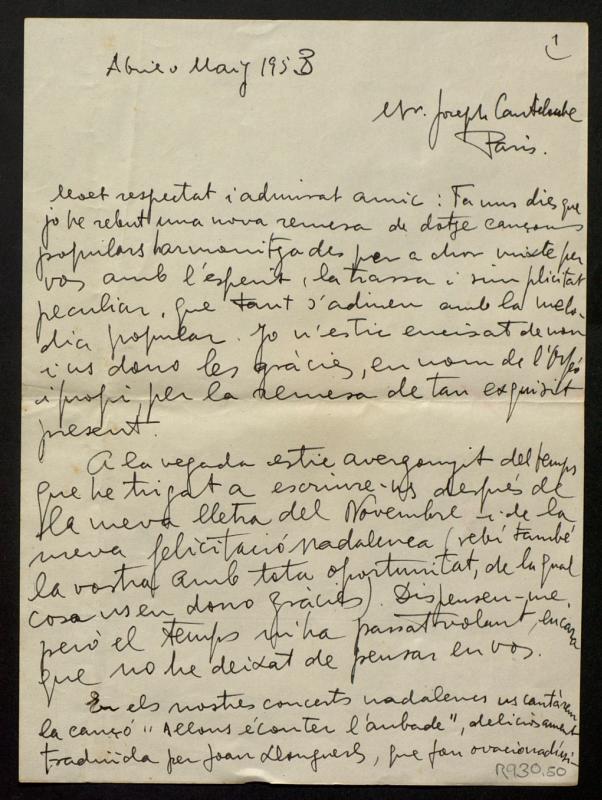 1
Abril o Maig 1953
Mr. Joseph Canteloube
Paris.
Molt respectat i admirat amic: Fa uns dies que
jo he rebut una nova remesa de dotze cançons
populars harmonitzades per a chor mixte per
vos amb l'esperit, la trassa i simplicitat
peculiar, que tant s'adiuen amb la melo-
dia popular. Jo n'estic encisat de nou
i us dono les gràcies, en nom de l'Orfeó
i propi, per la remesa de tan exquisit
present.
A la vegada estic avergonyit del temps
que he trigat a escriure-us després de
la meva lletra del Novembre i de la
meva felicitació nadalenca (rebí també
la vostra amb tota oportunitat, de la qual
cosa us en dono gràcies). Dispenseu-me,
però el temps m'ha passat volant, encara
que no he deixat de pensar en vos.
En els nostres concerts nadalencs us cantàrem
la cançó "Allons éconter l'aubade", deliciosament
traduïda per Joan Llongueres, que fou ovacionadíssi-
R930.50